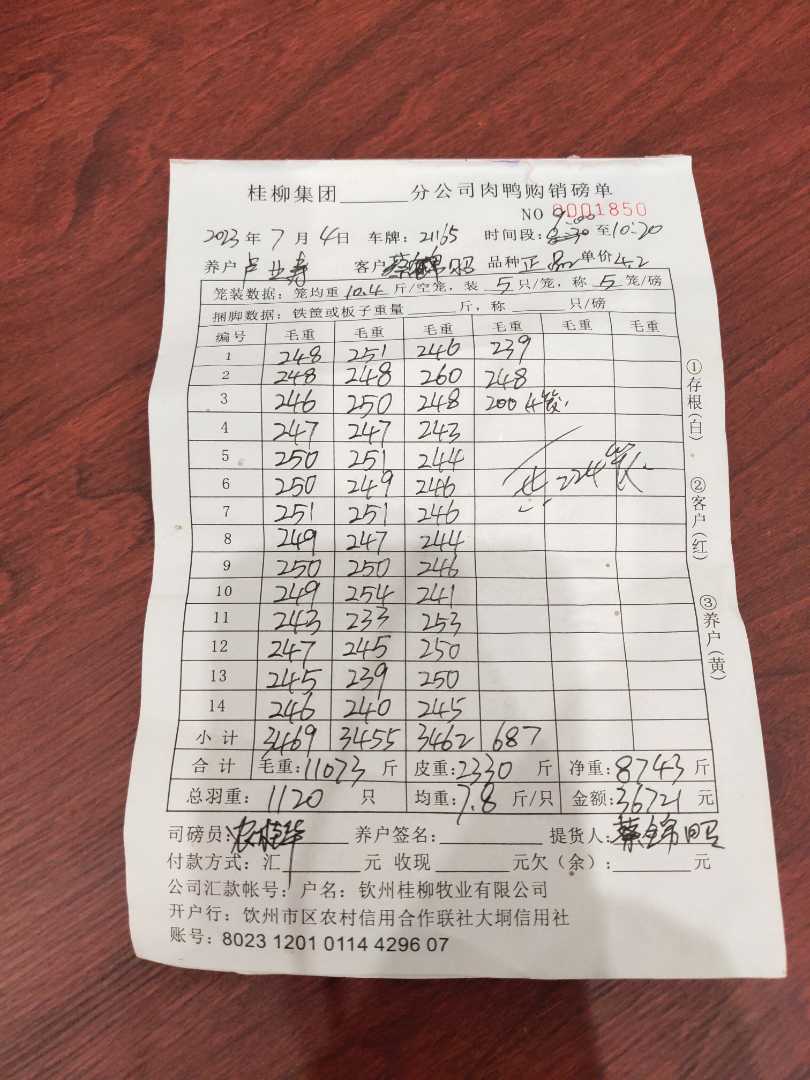 桂柳集团______分公司肉鸭购销磅单
NO 0001850
2023年 7 月 4日 车牌：21165 时间段：9:00 至10:20
养户 卢业寿 客户 蔡锦昭 品种 正品 单价 4.2
笼装数据：笼均重 10.4 斤/空笼，装 5 只/笼，称 5 笼/磅
捆脚数据：铁筐或板子重量______斤，称______只/磅
编号 毛重 毛重 毛重 毛重 毛重 毛重
1 248 251 246 239
2 248 248 260 248
3 246 250 248 200 4笼
4 247 247 243
5 250 251 244
6 250 249 246
共224笼
7 251 251 246
8 249 247 244
9 250 250 246
10 249 254 241
11 243 233 253
12 247 245 250
13 245 239 250
14 246 240 245
小计 3469 3455 3462 687
合计 毛重：11073 斤 皮重：2330 斤 净重：8743 斤
总羽重：1120 只 均重：7.8 斤/只 金额：36721 元
司磅员：农桂华 养户签名：________ 提货人：蔡锦昭
付款方式：汇______元 收现______元欠（余）：______元
公司汇款帐号：户名：钦州桂柳牧业有限公司
开户行：钦州市区农村信用合作联社大垌信用社
账号：8023 1201 0114 4296 07
①存根（白）
②客户（红）
③养户（黄）